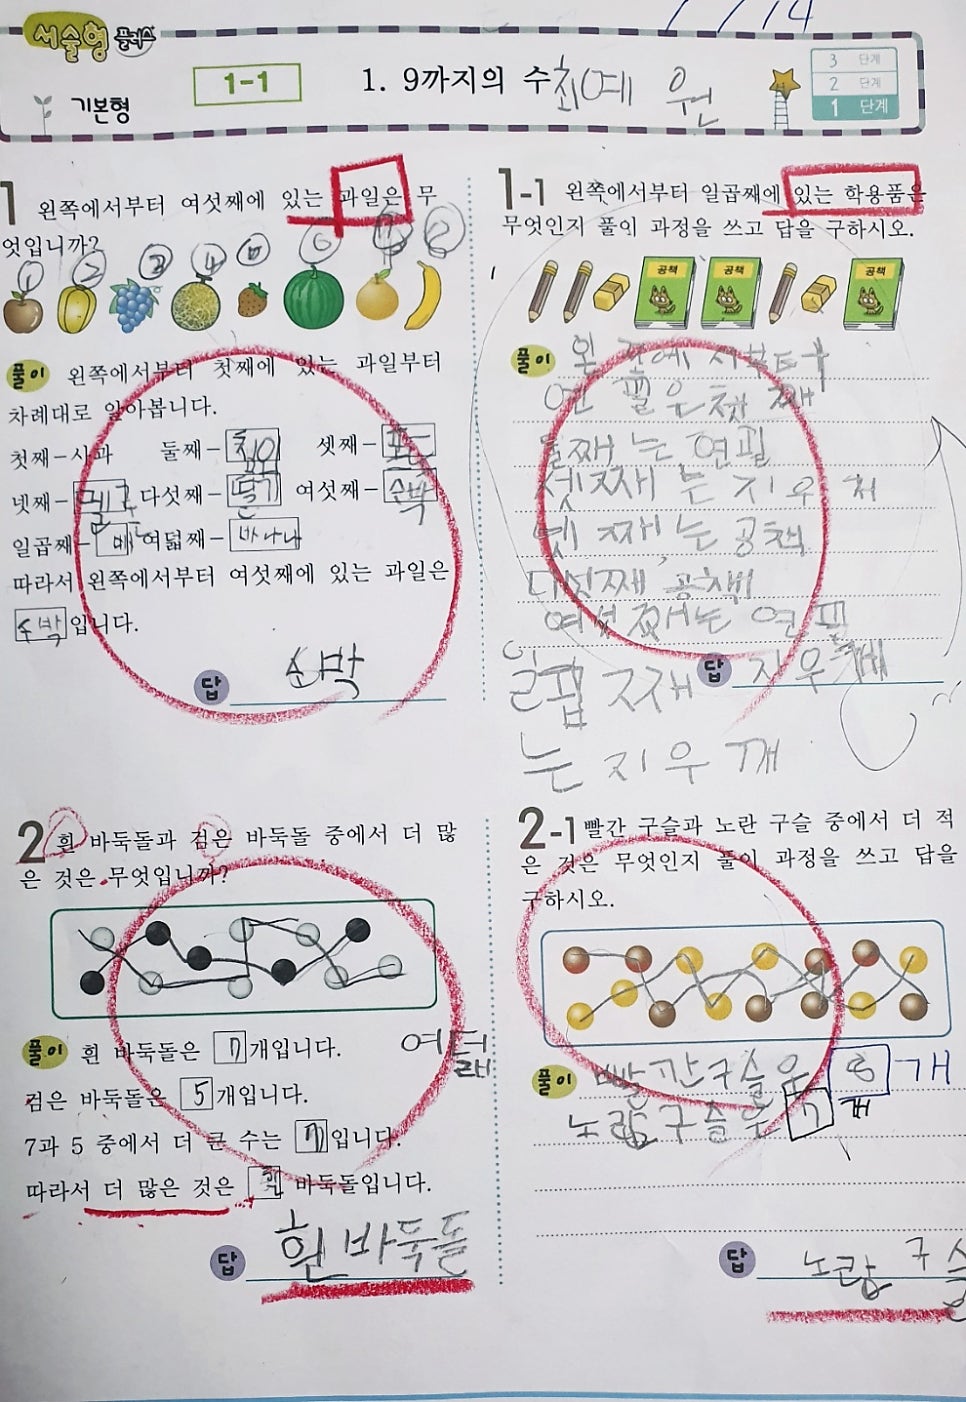 서술형 플러스
1-1
1. 9까지의 수 최예원
3 단계
2 단계
1 단계
기본형
1 왼쪽에서부터 여섯째에 있는 과일은 무
엇입니까?
① ② ③ ④ ⑤ ⑥ ⑦ ⑧
풀이 왼쪽에서부터 첫째에 있는 과일부터
차례대로 알아봅니다.
첫째-사과 둘째- 셋째-포도
넷째-멜론 다섯째-딸기 여섯째-수박
일곱째-배 여덟째-바나나
따라서 왼쪽에서부터 여섯째에 있는 과일은
수박입니다.
답 수박
1-1 왼쪽에서부터 일곱째에 있는 학용품은
무엇인지 풀이 과정을 쓰고 답을 구하시오.
공책 공책 공책
풀이 왼쪽에서부터
연필은 첫째
둘째는 연필
셋째는 지우
넷째는 공책
다섯째 공책
여섯째는 연필
일곱째
는 지우깨
답 지우깨
2 흰 바둑돌과 검은 바둑돌 중에서 더 많
은 것은 무엇입니까?
풀이 흰 바둑돌은 7개입니다.
검은 바둑돌은 5개입니다.
7과 5 중에서 더 큰 수는 7입니다.
따라서 더 많은 것은 흰 바둑돌입니다.
답 흰바둑돌
2-1 빨간 구슬과 노란 구슬 중에서 더 적
은 것은 무엇인지 풀이 과정을 쓰고 답을
구하시오.
풀이 빨간구슬은 8개
노란구슬은 7개
답 노란 구슬